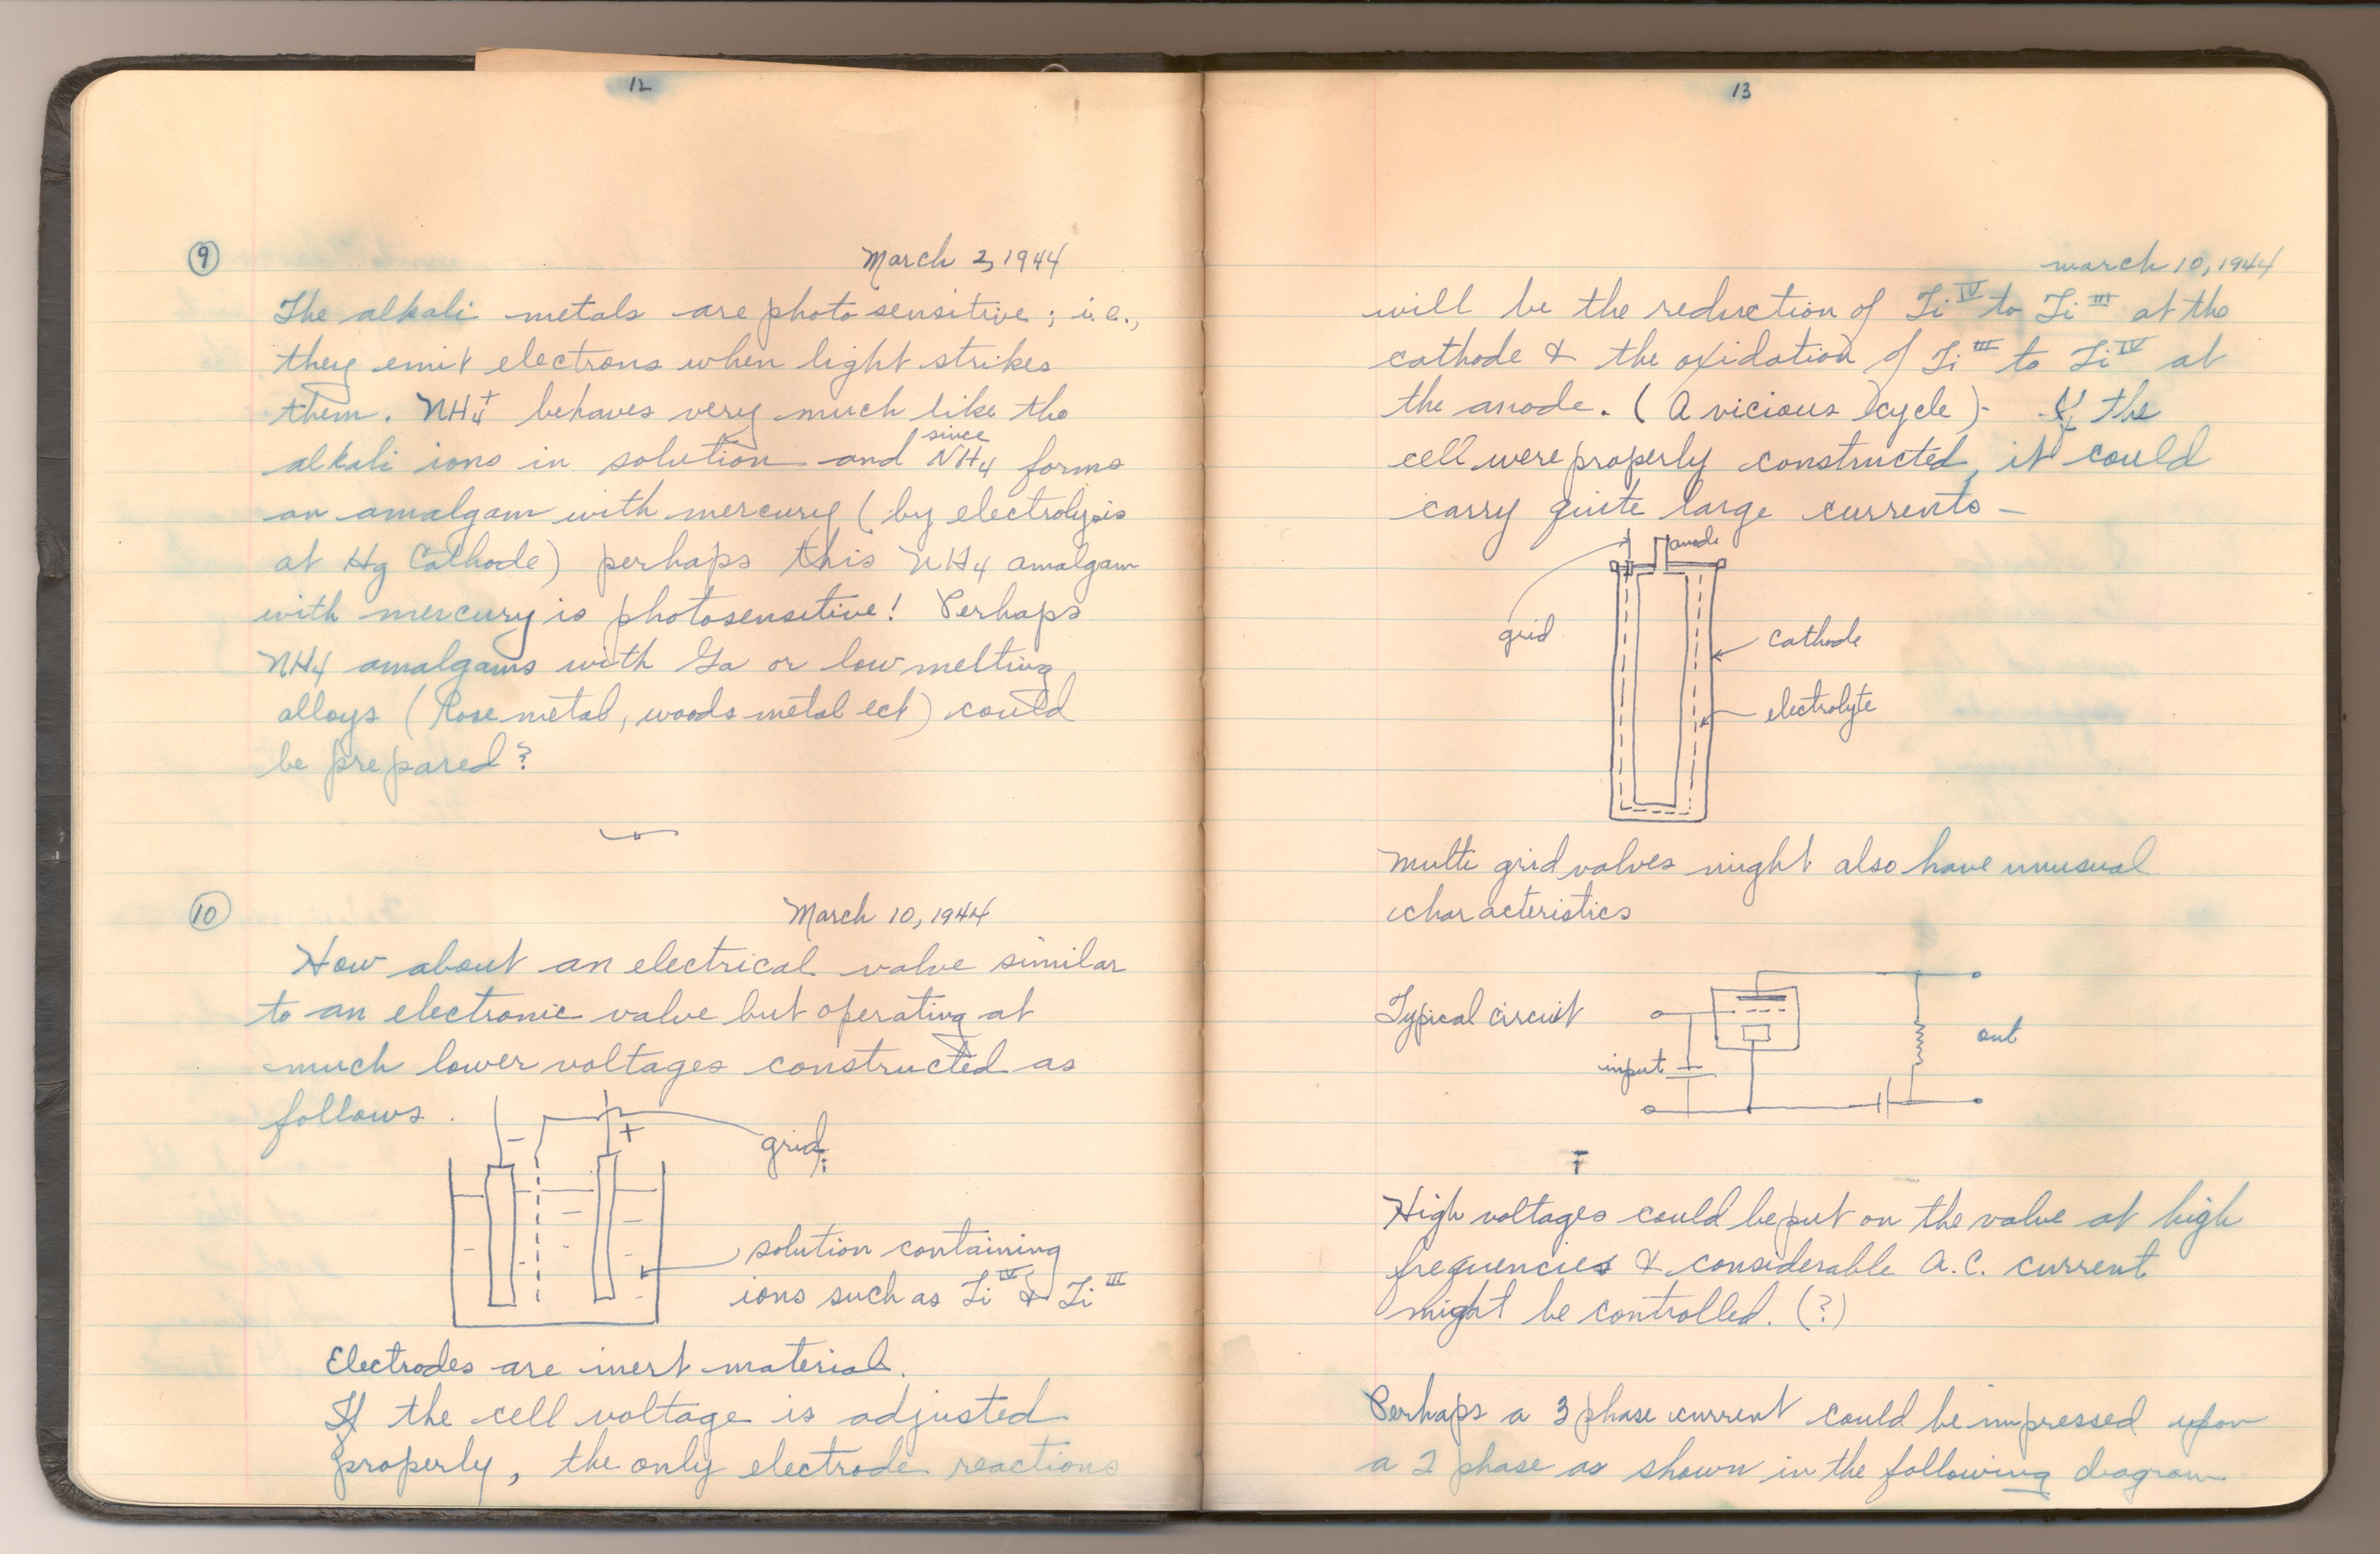 12
⑨
March 2, 1944
The alkali metals are photo sensitive; i.e.,
they emit electrons when light strikes
them. NH4+ behaves very much like the
alkali ions in solution and since NH4 forms
an amalgam with mercury (by electrolysis
at Hg Cathode) perhaps this NH4 amalgam
with mercury is photosensitive! Perhaps
NH4 amalgams with Ga or low melting
alloys (Rose metal, woods metal ect) could
be prepared?
⑩
March 10, 1944
How about an electrical valve similar
to an electronic valve but operating at
much lower voltages constructed as
follows.
−
+
grid
solution containing
ions such as Ti IV & Ti III
Electrodes are inert material.
If the cell voltage is adjusted
properly, the only electrode reactions
13
march 10, 1944
will be the reduction of Ti IV to Ti III at the
cathode & the oxidation of Ti III to Ti IV at
the anode. (A vicious cycle) - If the
cell were properly constructed, it could
carry quite large currents —
anode
grid
cathode
electrolyte
Multi grid valves might also have unusual
characteristics
Typical circuit
input
out
High voltages could be put on the valve at high
frequencies & considerable A.C. current
might be controlled. (?)
Perhaps a 3 phase current could be impressed upon
a 2 phase as shown in the following diagram